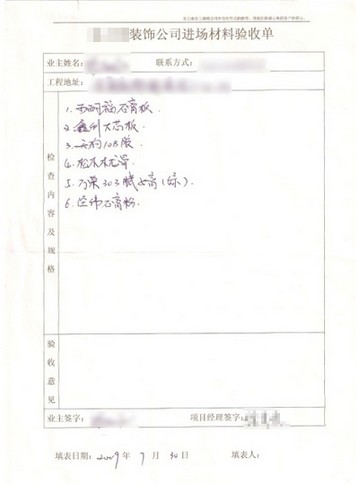 装饰公司进场材料验收单
业主姓名: 联系方式:
工程地址:
检查内容及规格
1. 石膏板.
2. 大芯板.
3. 108胶
4. 松木木龙骨
5. 303腻子膏(绿)
6. 石膏粉.
验收意见
业主签字: 项目经理签字:
填表日期: 2009年 7月 30日 填表人: